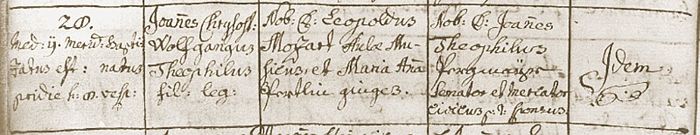 28.
med: 11. merid: baptizatus est: natus pridie h: 8. vesp:
Joannes Chrysost:
Wolfgangus
Theophilus
fil: leg:
Nob: D: Leopoldus
Mozart Aulae Mu-
sicus, et Maria Anna
Pertlin giuges.
Nob: D: Joannes
Theophilus
Pergmayr
Senator et Mercator
civicus p: t: sponsus
Idem